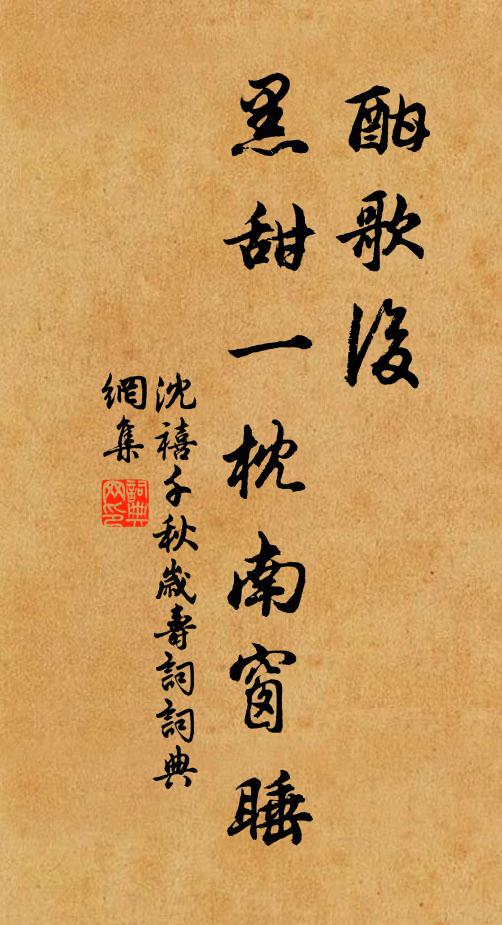 酣歌後
黑甜一枕南窗睡
沈禧千秋歲壽詞詞典
網集
詞典
網印